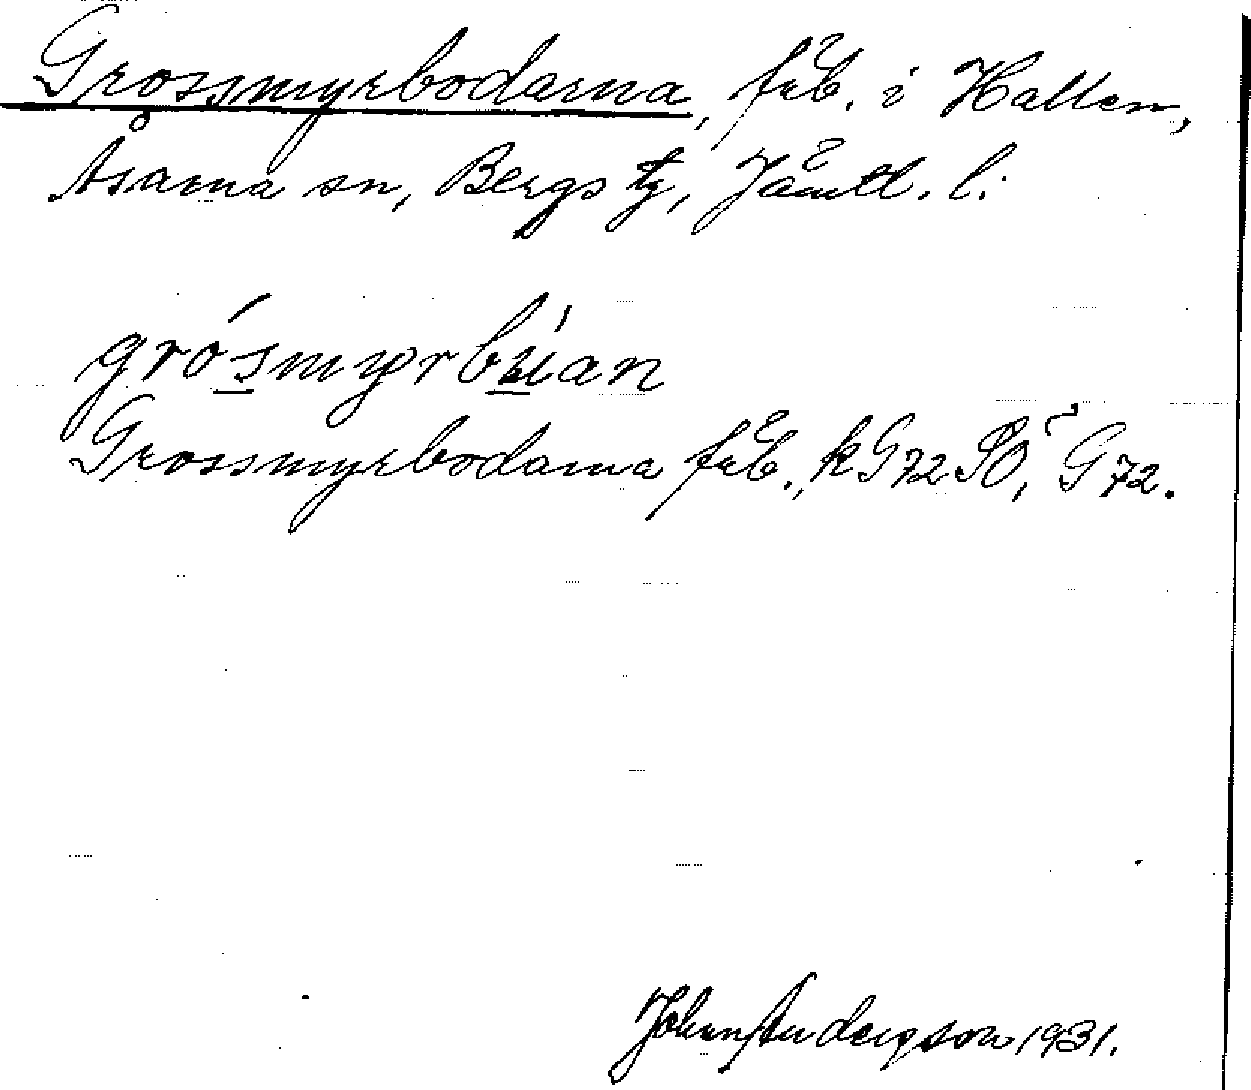 Grossmyrbodarna, fäb. i Hallen,
Åsarna sn, Bergs tg, Jämtl. l.
grósmyrbúan
Grossmyrbodarna fäb., k G72 SO, G72.
John Andersson 1931.